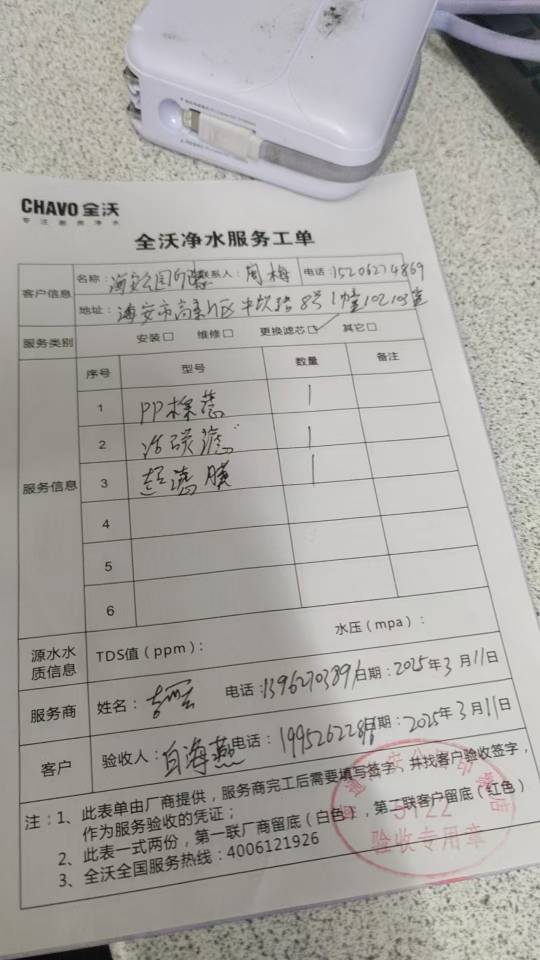 CHAVO 全沃
专注厨房净水
全沃净水服务工单
客户信息
名称：
联系人：周梅
电话：15206274869
地址：海安市高新区 路8号1幢102 103室
服务类别
安装□ 维修□ 更换滤芯☑ 其它□
服务信息
序号 型号 数量 备注
1 PP棉滤 1
2 活碳滤 1
3 超滤膜 1
4
5
6
源水水质信息
TDS值（ppm）：
水压（mpa）：
服务商
姓名：
电话：
日期：2025年3月11日
客户
验收人：白海燕
电话：
日期：2025年3月11日
注：1、此表单由厂商提供，服务商完工后需要填写签字，并找客户验收签字，
作为服务验收的凭证；
2、此表一式两份，第一联厂商留底（白色），第二联客户留底（红色）
3、全沃全国服务热线：4006121926
验收专用章